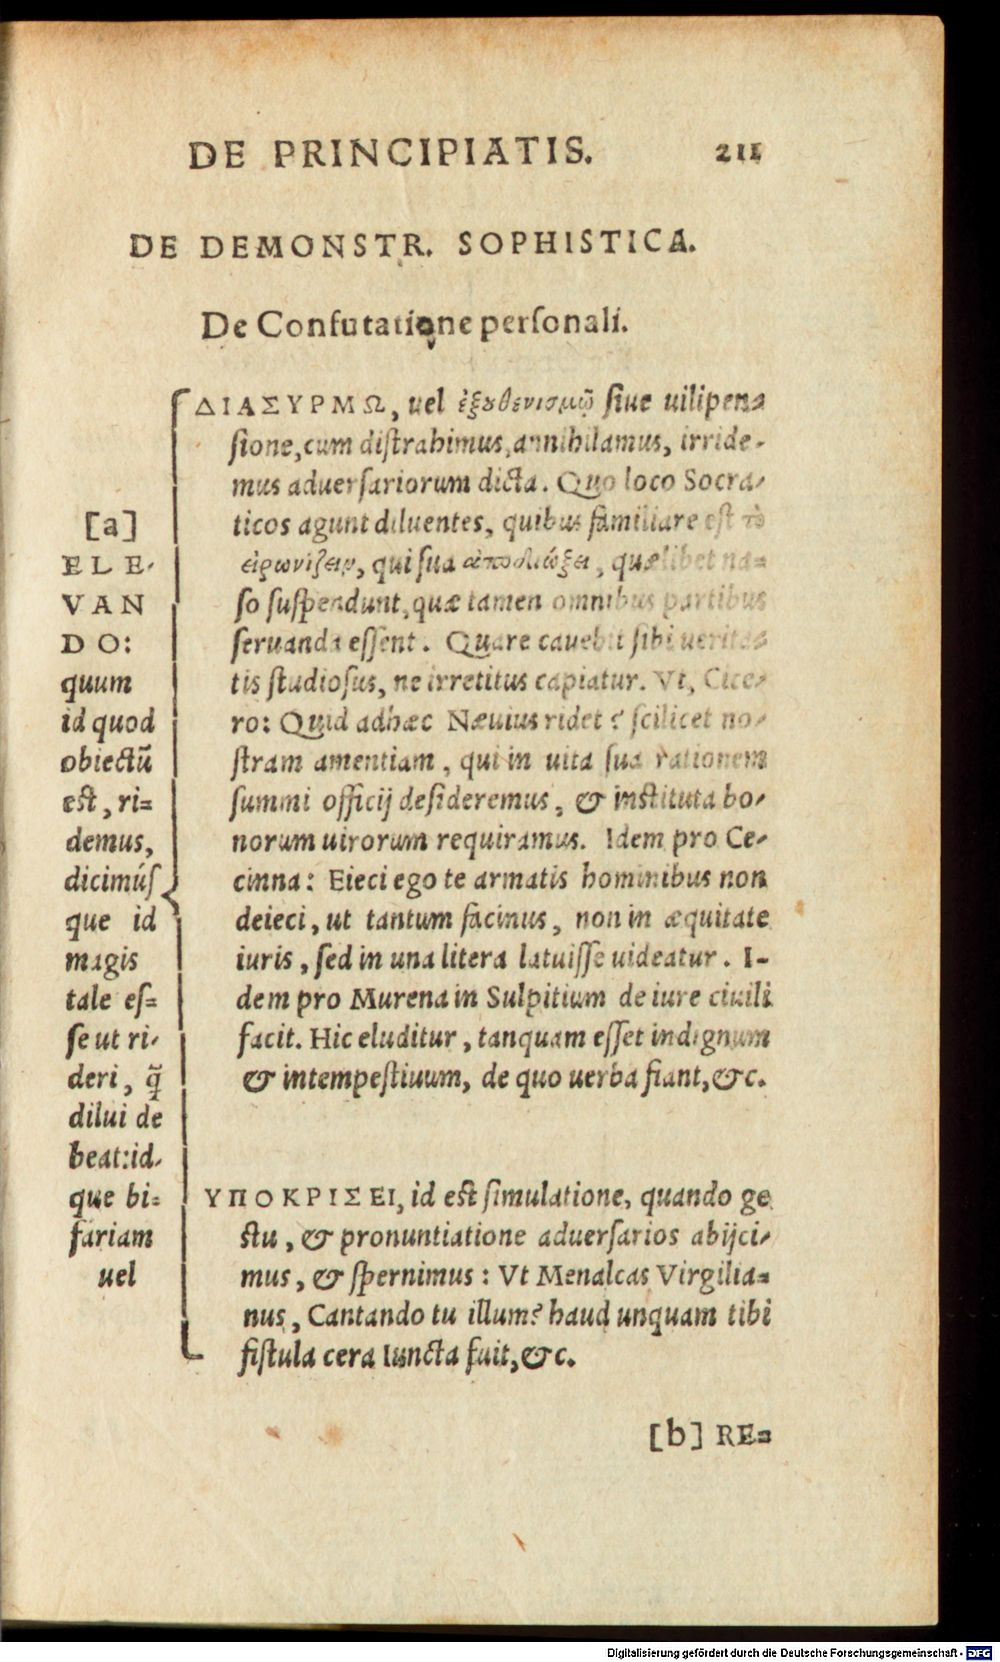 DE PRINCIPIATIS. 211
DE DEMONSTR. SOPHISTICA.
De Confutatione perſonali.
[a]
ELE-
VAN
DO:
quum
id quod
obiectũ
est, ri=
demus,
dicimúſ
que id
magis
tale eſ=
ſe ut ri-
deri, q̃
dilui de
beat:id-
que bi=
fariam
uel
ΔΙΑΣΥΡΜΩ, uel ἐξουθενισμῷ ſiue uilipen=
ſione,cum diſtrahimus,annihilamus, irride-
mus aduerſariorum dicta. Quo loco Socra-
ticos agunt diluentes, quibus familiare est τὸ
εἰρωνίζειν, qui ſua ἀποδιώξει, quælibet na=
ſo ſuſpendunt,quæ tamen omnibus partibus
ſeruanda eſſent. Quare cauebit ſibi uerita=
tis ſtudioſus, ne irretitus capiatur. Vt, Cice-
ro: Quid adhæc Næuius ridet? ſcilicet no-
ſtram amentiam, qui in uita ſua rationem
ſummi officij deſideremus, & inſtituta bo-
norum uirorum requiramus. Idem pro Ce-
cinna: Eieci ego te armatis hominibus non
deieci, ut tantum facinus, non in æquitate
iuris, ſed in una litera latuiſſe uideatur. I-
dem pro Murena in Sulpitium de iure ciuili
facit. Hic eluditur, tanquam eſſet indignum
& intempeſtiuum, de quo uerba fiant,&c.
ΥΠΟΚΡΙΣΕΙ, id est ſimulatione, quando ge
ſtu, & pronuntiatione aduerſarios abijci-
mus, & ſpernimus: Vt Menalcas Virgilia=
nus, Cantando tu illum? haud unquam tibi
fiſtula cera Iuncta fuit,&c.
[b] RE=
Digitalisierung gefördert durch die Deutsche Forschungsgemeinschaft - DFG